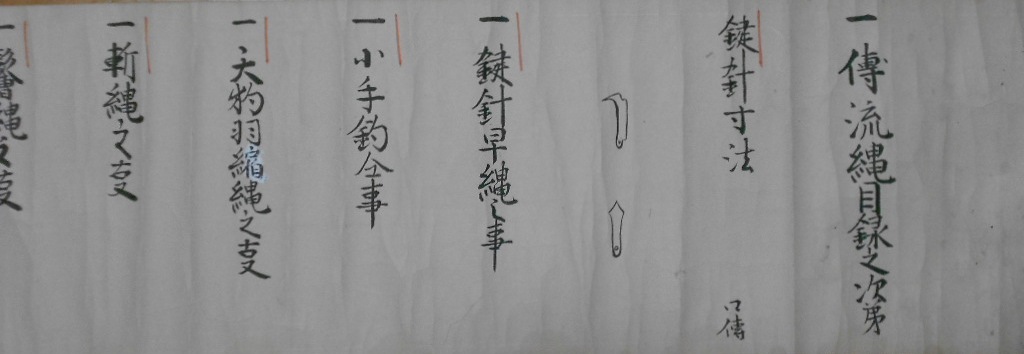 一傳流縄目録之次第
鍵針寸法
口傳
一鍵針早縄之事
一小手釣仝事
一天物羽縮縄之支
一斬縄之支
一縄之支